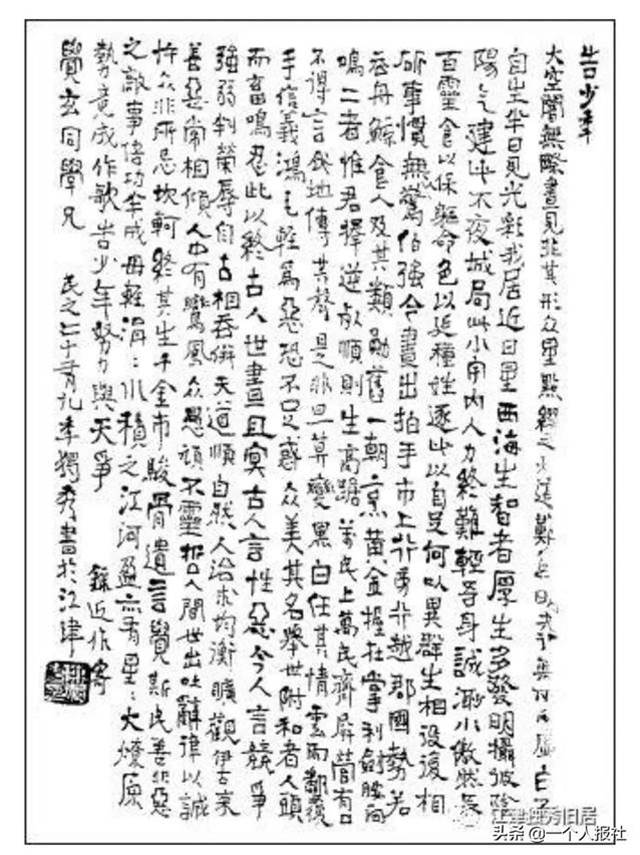 告少年
大空闇無際晝見非其形众星點綴之
自生半日見光彩我居近日星西海生智者厚生多發明攝彼陰
陽氣建此不夜城局此小宇内人力終難輕吾身誠渺小傲然長
百靈食以保軀命色以延種姓逐此以自足何以異群生相役後相
斫事慣無驚伯強今晝出拍手市上行旁行越郡國勢若
吞舟鯨食人及其類勛舊一朝烹黄金握在掌利劍腰间
鳴二者惟君擇逆死順則生高踞萬民上萬民齊屏營有口
不得言伏地傳其聲是非旦暮變黑白任其情雲雨翻覆
手信義鴻毛輕爲惡恐不足惑众美其名舉世附和者人頭
而畜鳴忍此以終古人世晝且冥古人言性惡今人言競爭
強弱判榮辱自古相吞併天道順自然人治求均衡曠觀伊古來
善惡常相傾人中有鸞鳳众愚頑不靈哲人間世出吐辭律以誠
忤众非所忌坎軻終其生千金市駿骨遺言覺斯民善非惡
之敵事倍功半成毋輕涓:水積之江河盈亦有星:火燎原
勢竟成作歌告少年努力與天爭
錄近作寄
覺玄同學兄
獨秀書於江津
江津独秀旧居
头条 @一个人报社